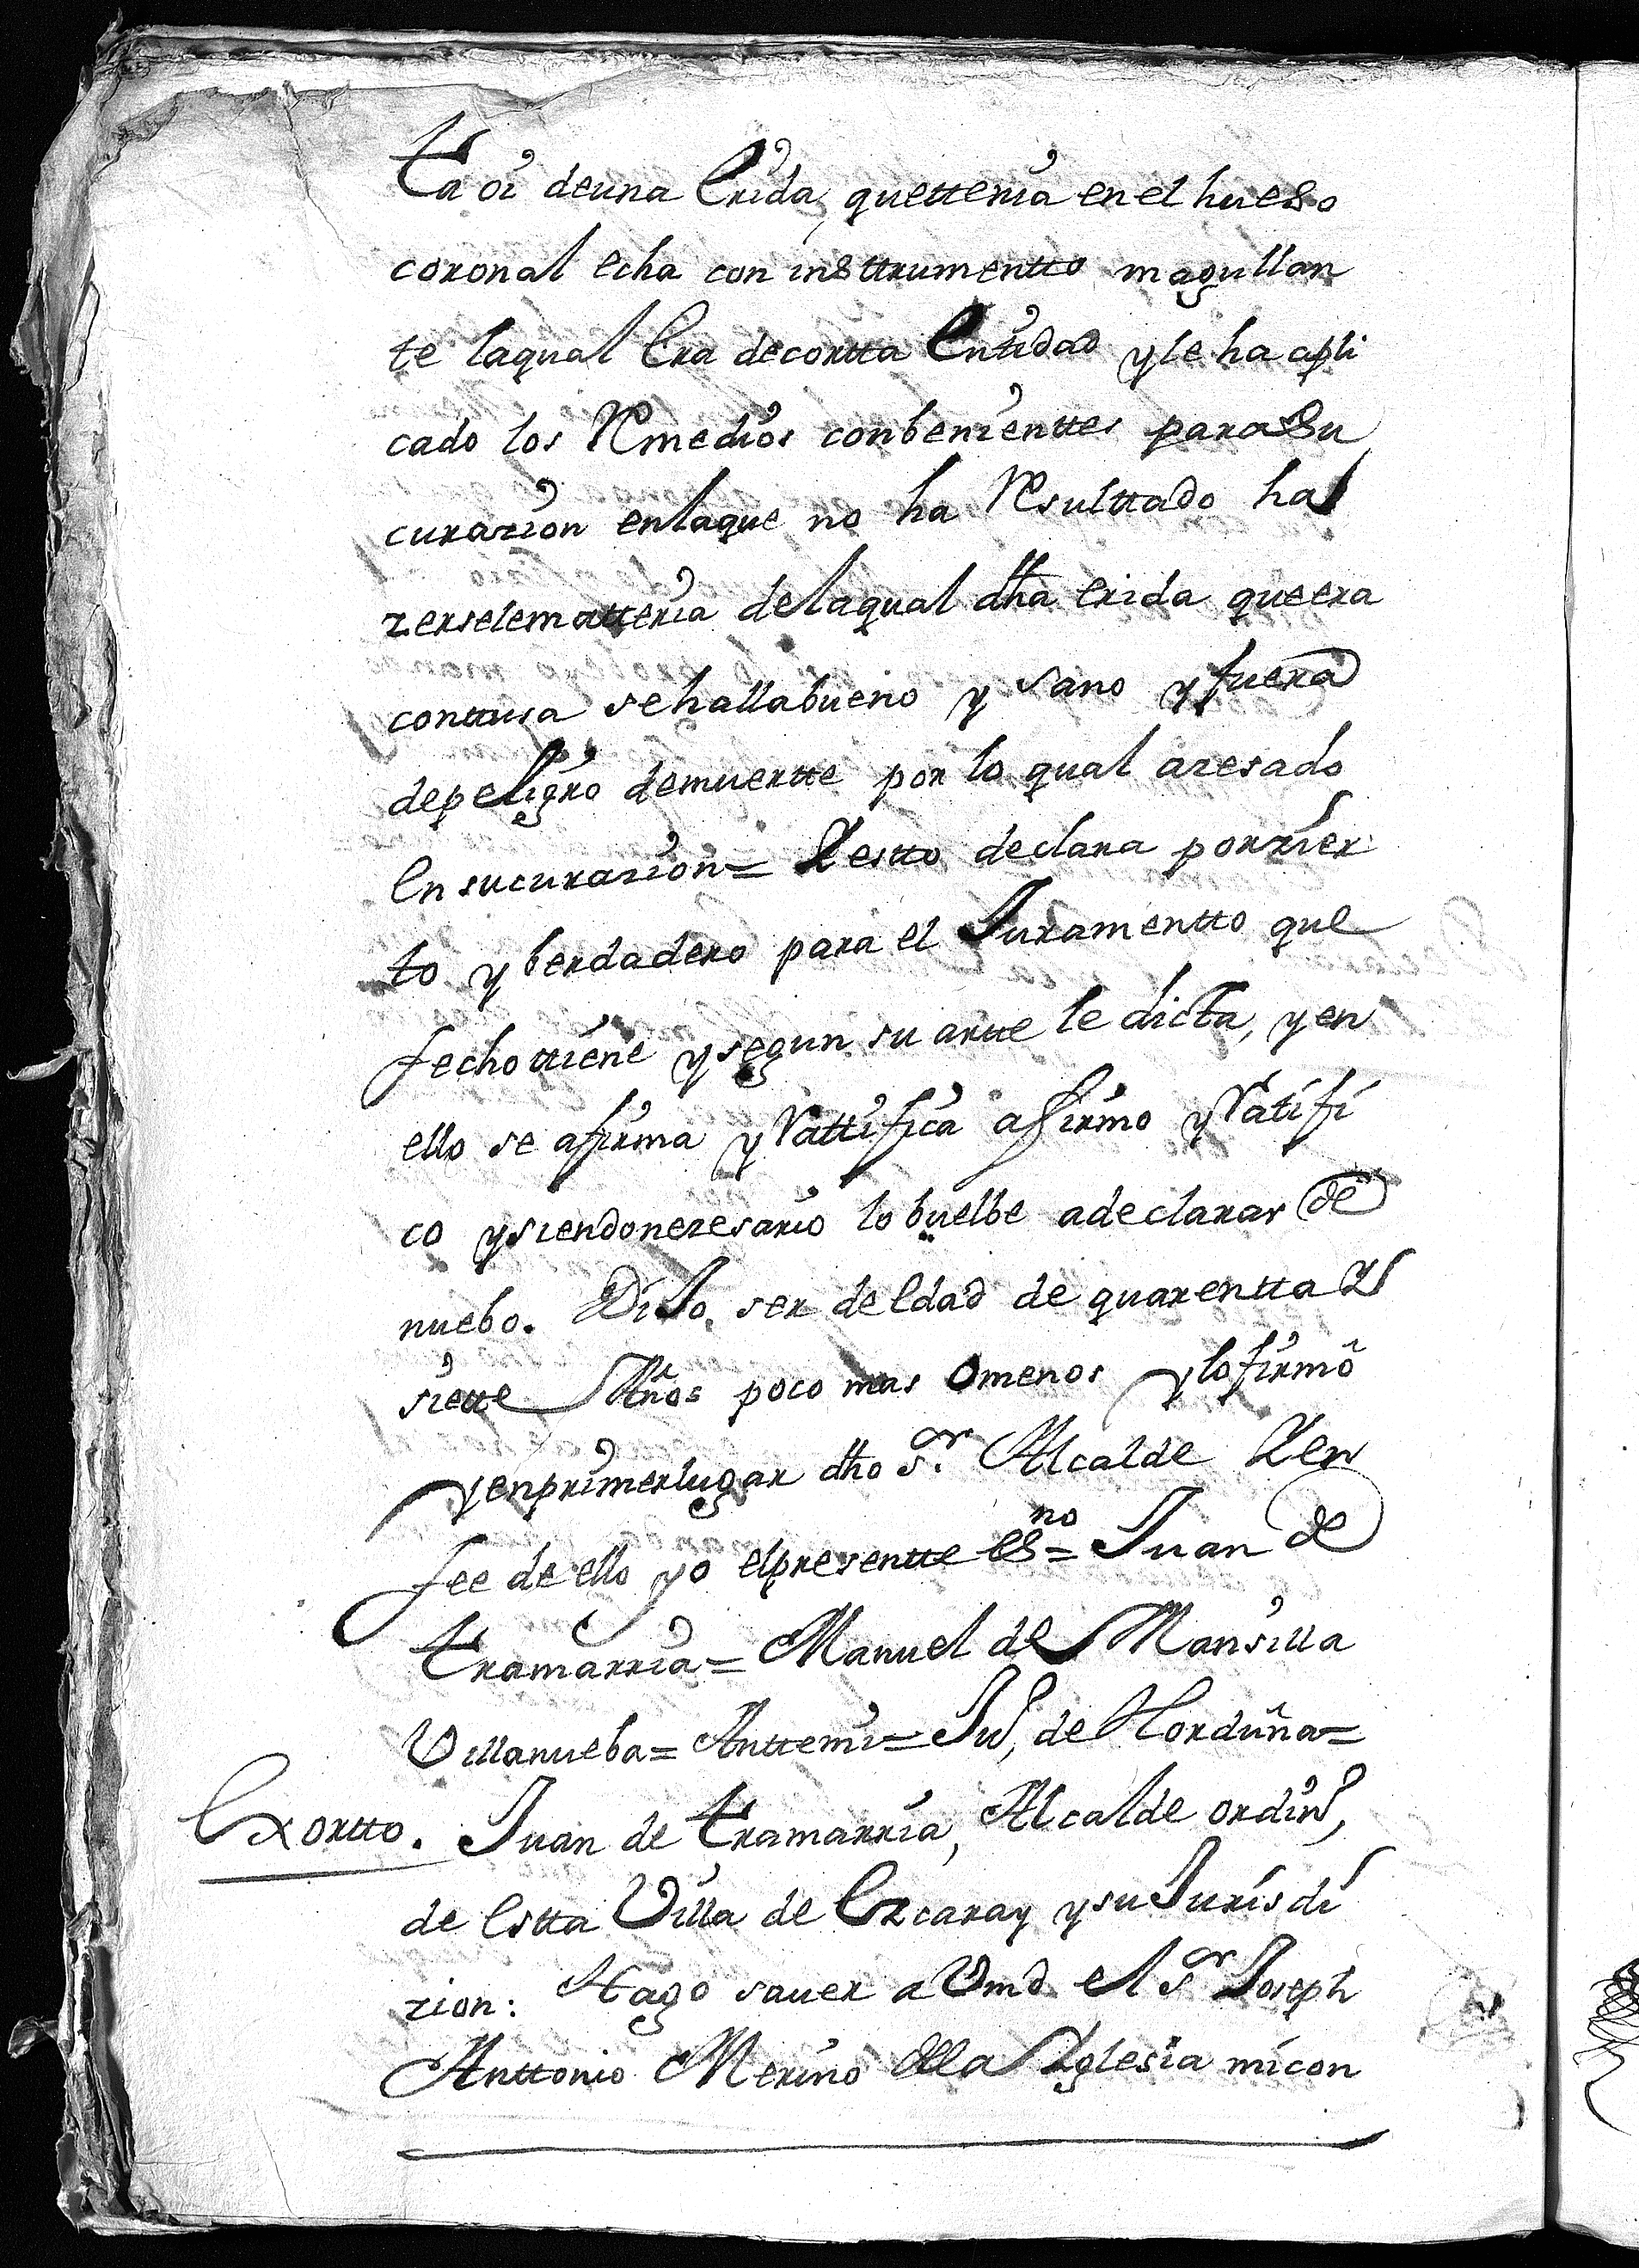 ta oi de una Erida, que ttenia en el hueso
coronal echa con insttrumentto magullan
te la qual Era de cortta Entidad y le ha apli
cado los Remedios conbenienttes para Su
curazion en la que no ha Resulttado ha
zersele matteria de la qual dha erida que era
conttusa se halla bueno y sano y fuera
de peligro de muertte por lo qual a zesado
En su curazion = Y estto declara por zier
to y berdadero para el Juramentto que
fecho ttiene y segun su artte le dicta, y en
ello se afirma y Rattifica afirmo y Ratifi
co y siendo nezesario lo buelbe a declarar de
nuebo. Dijo ser de Edad de quarentta y
siette Años poco mas o menos y lo firmô
y en primer lugar dho Sr. Alcalde Y en
fee de ello yo el presentte Esno = Juan de
tramarria = Manuel de Mansilla
Villanueba = Antte mi = Jun, de Horduña =
Exortto. Juan de tramarria, Alcalde ordino,
de Estta Villa de Ezcaray y su Jurisdi
zion: Hago saver a Vmd el Sr Joseph
Anttonio Merino de la Yglesia mi con